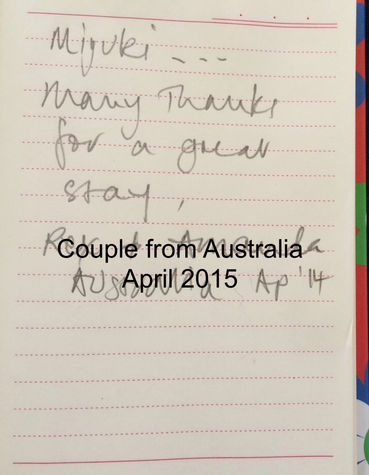 Miyuki ---
Many Thanks
for a great
stay,
& Amanda
Couple from Australia
Australia Ap '14
April 2015